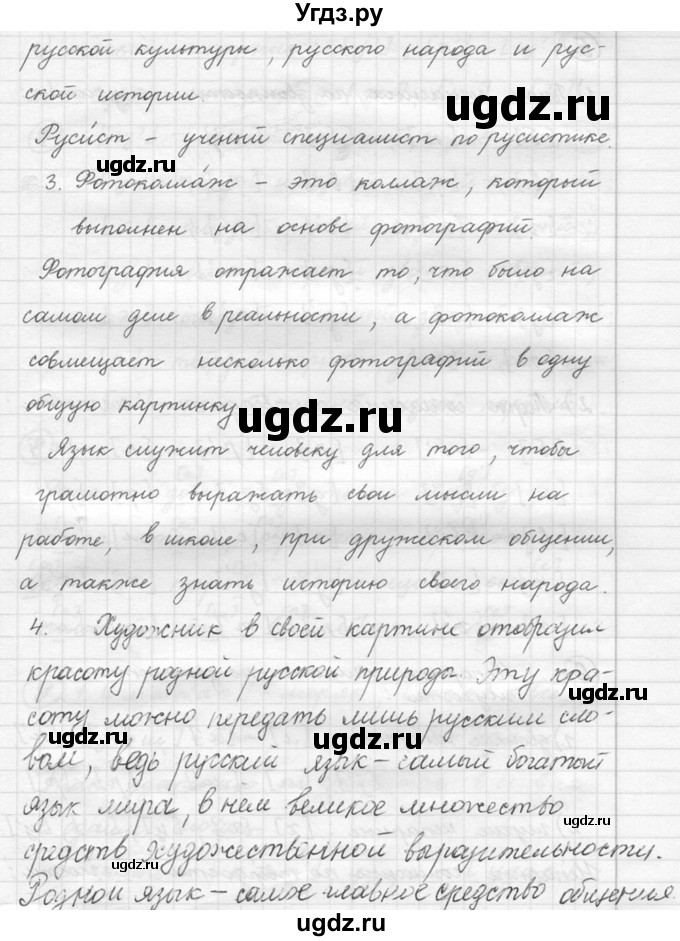 Угдз.ру
русской культуры, русского народа и рус-
ской истории.
ugdz.ru
Руси́ст – ученый специалист по русистике.
ugdz.ru
3. Фотоколла́ж – это коллаж, который
выполнен на основе фотографий
Фотография отражает то, что было на
самом деле в реальности, а фотоколлаж
совмещает несколько фотографий в одну
общую картинку
ugdz.ru
Язык служит человеку для того, чтобы
грамотно выражать свои мысли на
работе, в школе, при дружеском общении,
а также знать историю своего народа.
4. Художник в своей картине отобразил
ugdz.ru
красоту родной русской природы Эту кра-
соту можно передать лишь русским сло-
ugdz.ru
ugdz.ru
вом, ведь русский язык – самый богатый
язык мира, в нём великое множество
средств художественной выразительности.
ugdz.ru
Родной язык – самое главное средство общения.
ugdz.ru